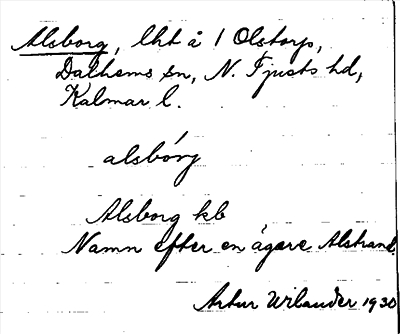 Alsborg, lht å 1 Olstorp,
Dalhems sn, N. Tjusts hd,
Kalmar l.
alsbórj
Alsborg kb
Namn efter en ägare Alstrand.
Artur Wilander 1930